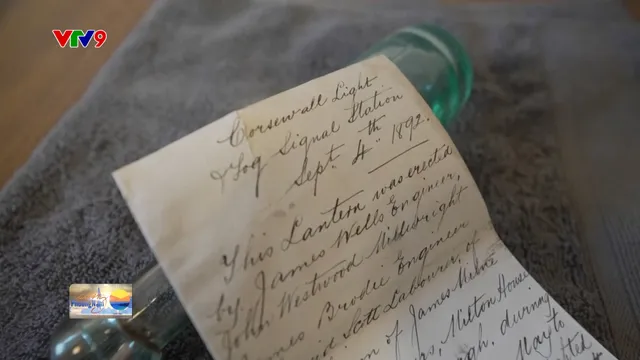 VTV9
Corsewall Light
& Fog Signal Station
Sept. 4th 1892.
This Lantern was erected
by James Wells Engineer,
John Westwood Millwright
James Brodie Engineer
David Scott Labourer, of
of James Milne
Milton House
during
May to